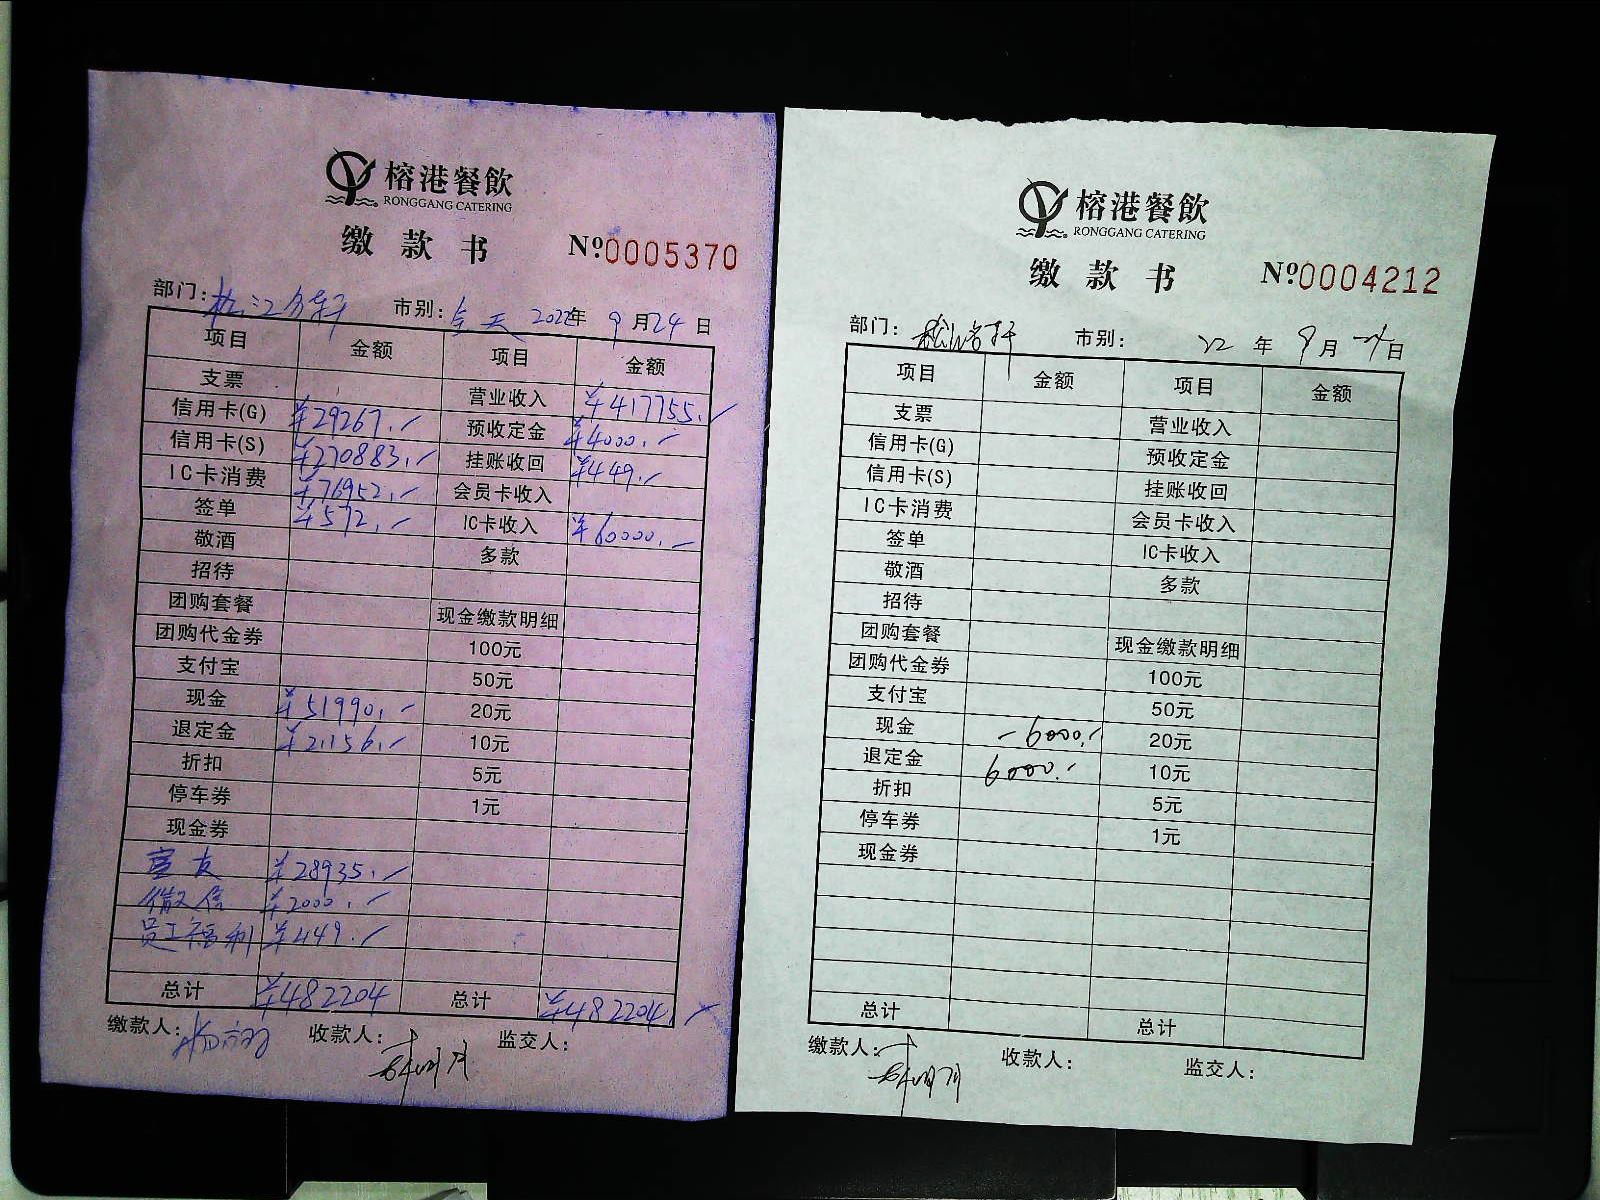 榕港餐飲
RONGGANG CATERING
缴 款 书 Nº:0005370
部门: 松江名轩 市别: 全天 2022年 9月24日
项目 金额 项目 金额
支票 营业收入 ¥417755.-
信用卡(G) ¥29267.- 预收定金 ¥4000.-
信用卡(S) ¥270883.- 挂账收回 ¥449.-
IC卡消费 ¥76952.- 会员卡收入
签单 ¥572.- IC卡收入 ¥60000.-
敬酒 多款
招待
团购套餐 现金缴款明细
团购代金券 100元
支付宝 50元
现金 ¥51990.- 20元
退定金 ¥2156.- 10元
折扣 5元
停车券 1元
现金券
¥28935.-
微信 ¥2000.-
员工福利 ¥449.-
总计 ¥482204 总计 ¥482204.-
缴款人: 收款人: 监交人:
榕港餐飲
RONGGANG CATERING
缴 款 书 Nº:0004212
部门: 松江名轩 市别: 22 年 9月24日
项目 金额 项目 金额
支票 营业收入
信用卡(G) 预收定金
信用卡(S) 挂账收回
IC卡消费 会员卡收入
签单 IC卡收入
敬酒 多款
招待
团购套餐 现金缴款明细
团购代金券 100元
支付宝 50元
现金 -6000.- 20元
退定金 6000.- 10元
折扣 5元
停车券 1元
现金券
总计 总计
缴款人: 收款人: 监交人: